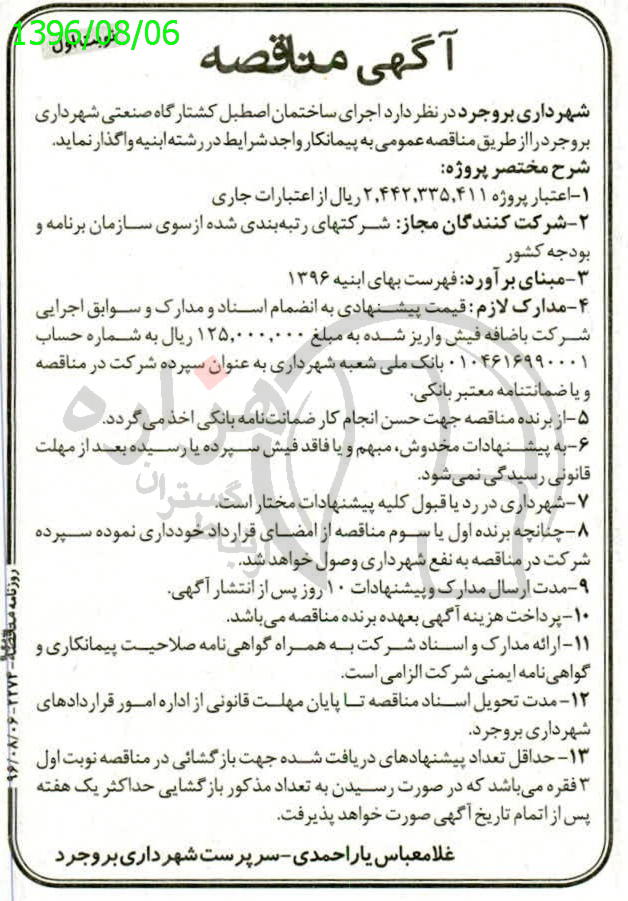 1396/08/06
نوبت اول
آگهی مناقصه
شهرداری بروجرد در نظر دارد اجرای ساختمان اصطبل کشتارگاه صنعتی شهرداری
بروجرد را از طریق مناقصه عمومی به پیمانکار واجد شرایط در رشته ابنیه واگذار نماید.
شرح مختصر پروژه:
۱-اعتبار پروژه ۲,۴۴۲,۳۳۵,۴۱۱ ریال از اعتبارات جاری
۲-شرکت کنندگان مجاز: شرکتهای رتبه‌بندی شده ازسوی سازمان برنامه و
بودجه کشور
۳-مبنای برآورد: فهرست بهای ابنیه ۱۳۹۶
۴-مدارک لازم: قیمت پیشنهادی به انضمام اسناد و مدارک و سوابق اجرایی
شرکت باضافه فیش واریز شده به مبلغ ۱۲۵,۰۰۰,۰۰۰ ریال به شماره حساب
۰۱۰۴۶۱۶۹۹۰۰۰۱ بانک ملی شعبه شهرداری به عنوان سپرده شرکت در مناقصه
و یا ضمانتنامه معتبر بانکی.
۵-از برنده مناقصه جهت حسن انجام کار ضمانت‌نامه بانکی اخذ می گردد.
۶-به پیشنهادات مخدوش، مبهم و یا فاقد فیش سپرده یا رسیده بعد از مهلت
قانونی رسیدگی نمی‌شود.
۷-شهرداری در رد یا قبول کلیه پیشنهادات مختار است.
۸-چنانچه برنده اول یا سوم مناقصه از امضای قرارداد خودداری نموده سپرده
شرکت در مناقصه به نفع شهرداری وصول خواهد شد.
۹-مدت ارسال مدارک و پیشنهادات ۱۰ روز پس از انتشار آگهی.
۱۰-پرداخت هزینه آگهی بعهده برنده مناقصه می‌باشد.
۱۱-ارائه مدارک و اسناد شرکت به همراه گواهی‌نامه صلاحیت پیمانکاری و
گواهی‌نامه ایمنی شرکت الزامی است.
۱۲- مدت تحویل اسناد مناقصه تا پایان مهلت قانونی از اداره امور قراردادهای
شهرداری بروجرد.
۱۳- حداقل تعداد پیشنهادهای دریافت شده جهت بازگشائی در مناقصه نوبت اول
۳ فقره می‌باشد که در صورت رسیدن به تعداد مذکور بازگشایی حداکثر یک هفته
پس از اتمام تاریخ آگهی صورت خواهد پذیرفت.
غلامعباس یاراحمدی-سرپرست شهرداری بروجرد
روزنامه مناقصه - ۲۲۷۴ - ۹۶/۰۸/۰۶
هزاره
گستران